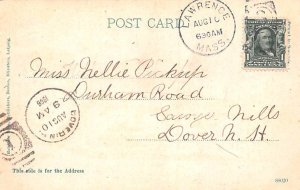 POST CARD
LAWRENCE,
AUG 10
6 30 AM
MASS.
1
Miss Nellie Pickup
Durham Road
Sawyer Mills
Dover N. H.
AUG 10
9 AM
1
This side is for the Address